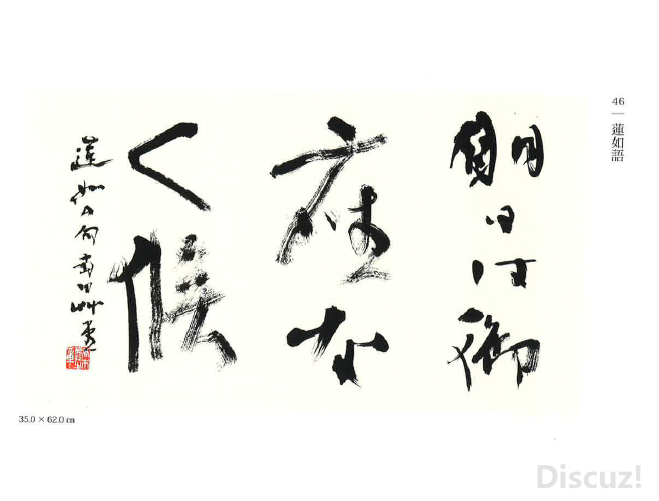 46 蓮如語
明日は御
座な
く候
蓮如
35.0 × 62.0 cm
Discuz!